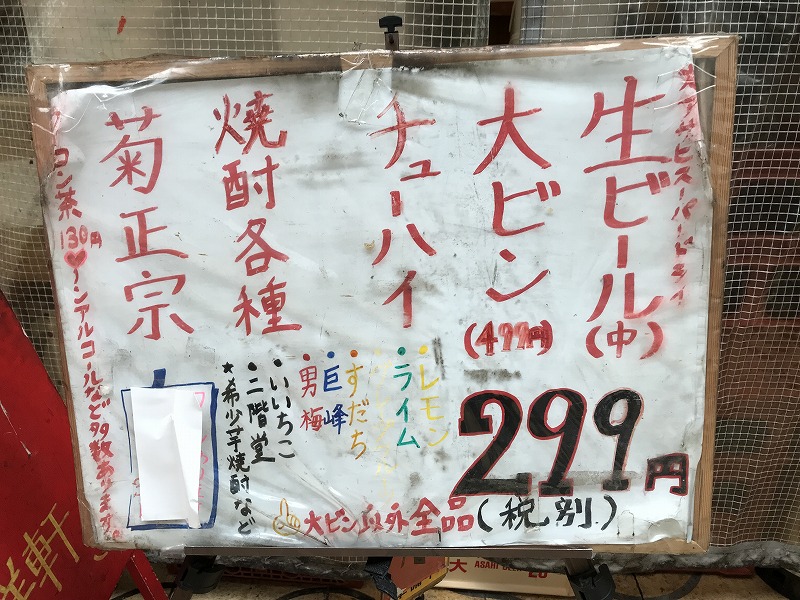 アサヒスーパードライ
生ビール(中)
大ビン
(499円)
チューハイ
・レモン
・ライム
・すだち
・巨峰
・男梅
焼酎各種
・いいちこ
・二階堂
★希少芋焼酎など
菊正宗
299円
(税別)
大ビン以外全品
コン茶130円♥ノンアルコールなど多数あります。
洋軒
大
ASAHI BEER